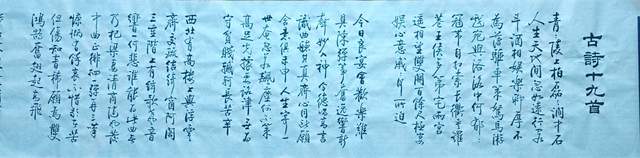 古詩十九首
青〻陵上柏磊〻澗中石
人生天地間忽如遠行客
斗酒相娛樂聊厚不
為薄驅車策駑馬游
戲宛與洛洛中何鬱〻
冠帶自相索長衢羅夾
巷王侯多第宅兩宮
遙相望雙闕百餘尺極宴
娛心意戚〻何所迫
今日良宴會歡樂難
具陳彈箏奮逸響新
聲妙入神令德唱高言
識曲聽其真齊心同所願
含意俱未申人生寄一
世奄忽若飆塵何不策
高足先據要路津無為
守貧賤轗軻長苦辛
西北有高樓上與浮雲
齊交疏結綺窗阿閣
三重階上有絃歌聲音
響一何悲誰能為此曲無
乃杞梁妻清商隨風發
中曲正徘徊一彈再三嘆
慷慨有餘哀不惜歌者苦
但傷知音稀願為雙
鴻鵠奮翅起高飛